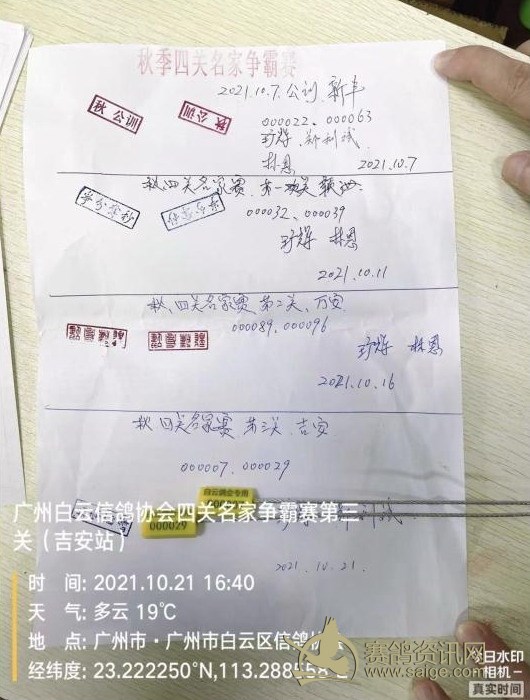 秋季四关名家争霸赛
2021.10.7.公训 新丰
秋公训
秋公训
000022、000063
林恩 2021.10.7
秋四关名家赛.第一关
000032、000039
林恩
2021.10.11
秋.四关名家赛.第二关、万安
000089.000096
林恩
2021.10.16
秋四关名家赛 第三关.吉安
000007.000029
白云鸽会专用
000029
2021.10.21.
广州白云信鸽协会四关名家争霸赛第三
关（吉安站）
时 间: 2021.10.21 16:40
天 气: 多云 19℃
地 点: 广州市·广州市白云区信鸽协会
经纬度: 23.222250°N,113.288558°E
今日水印
相机
真实时间
赛鸽资讯网
www.saige.com